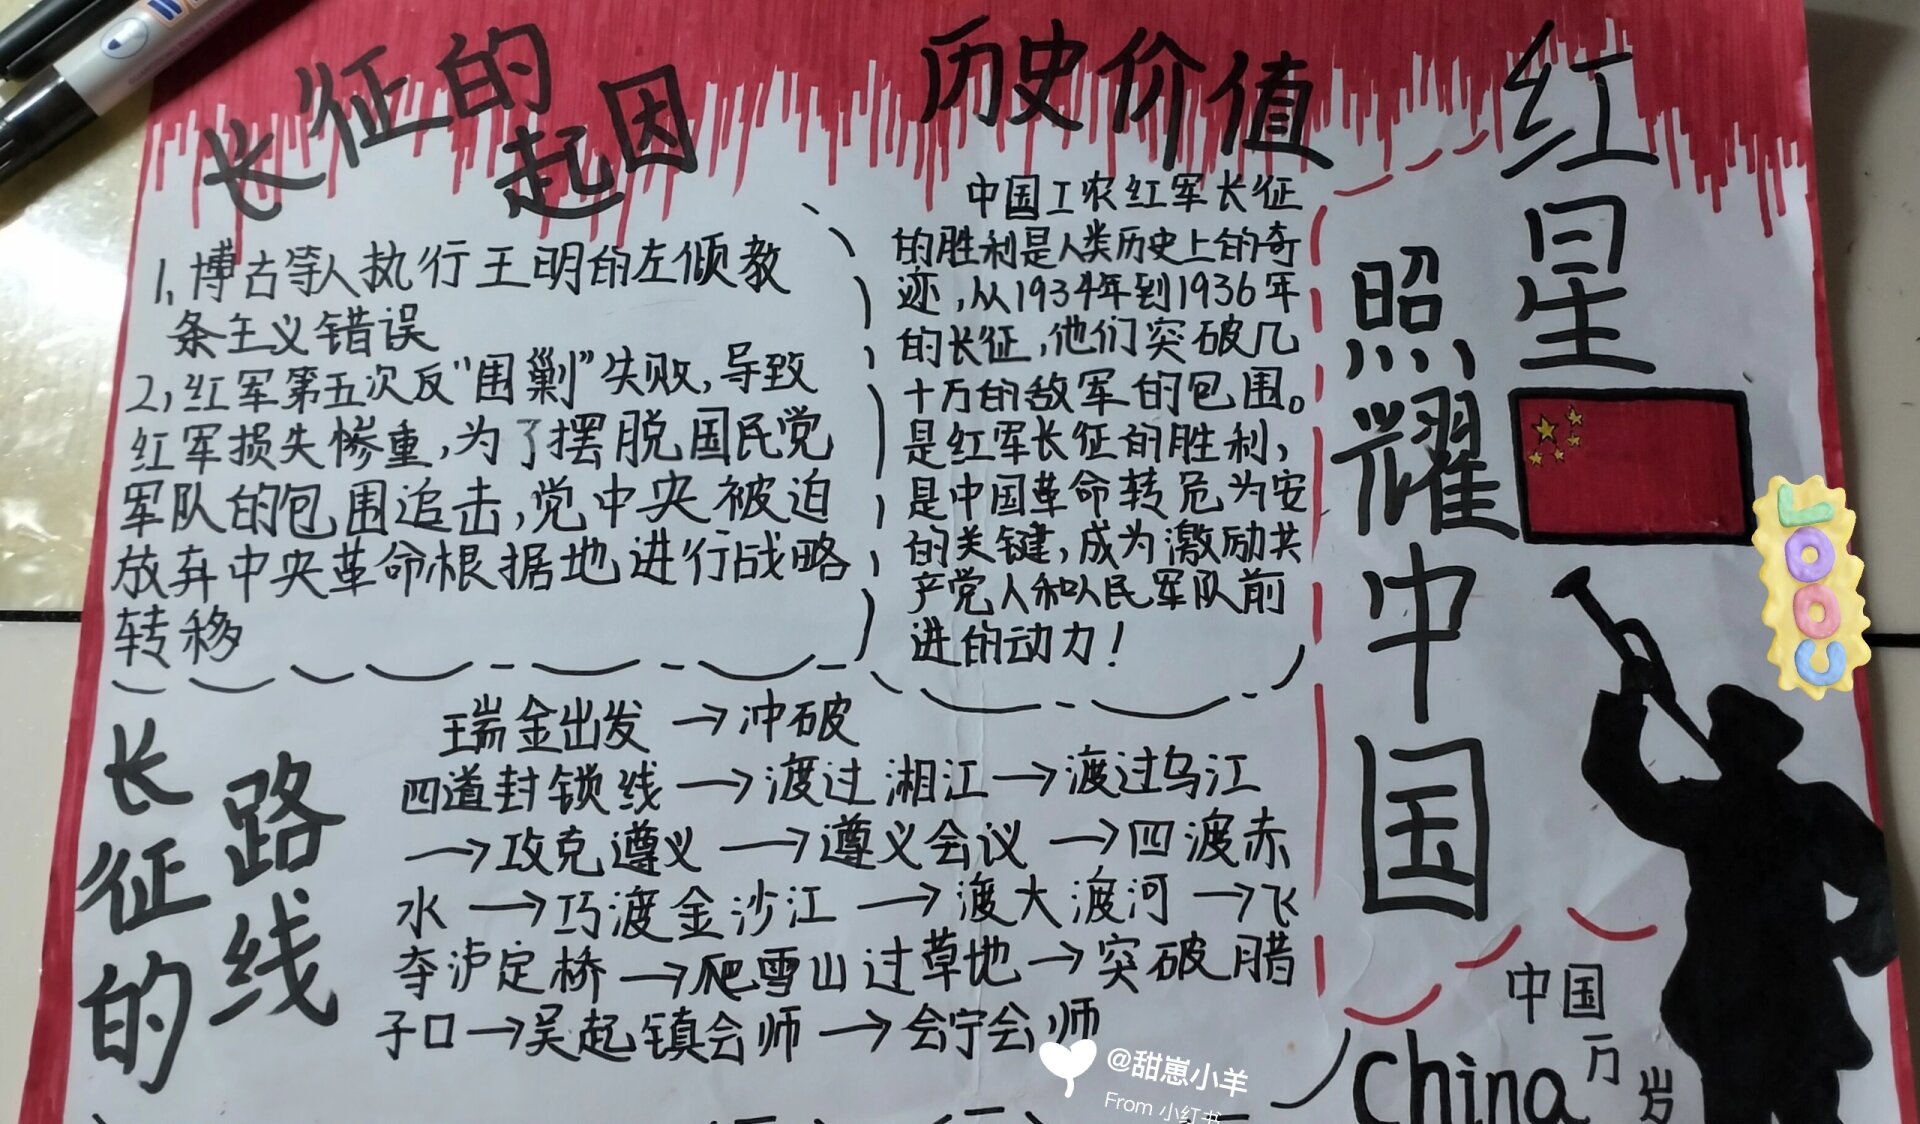 长征的
起因
1,博古等人执行王明的左倾教
条主义错误
2,红军第五次反“围剿”失败,导致
红军损失惨重,为了摆脱国民党
军队的包围追击,党中央被迫
放弃中央革命根据地进行战略
转移
历史价值
中国工农红军长征
的胜利是人类历史上的奇
迹,从1934年到1936年
的长征,他们突破几
十万的敌军的包围。
是红军长征的胜利,
是中国革命转危为安
的关键,成为激励共
产党人和人民军队前
进的动力!
红星
照耀中国
长征的
路线
瑞金出发→冲破
四道封锁线→渡过湘江→渡过乌江
→攻克遵义→遵义会议→四渡赤
水→巧渡金沙江→渡大渡河→飞
夺泸定桥→爬雪山过草地→突破腊
子口→吴起镇会师→会宁会师
中国
万
岁
China
LOOC
@甜崽小羊
From 小红书